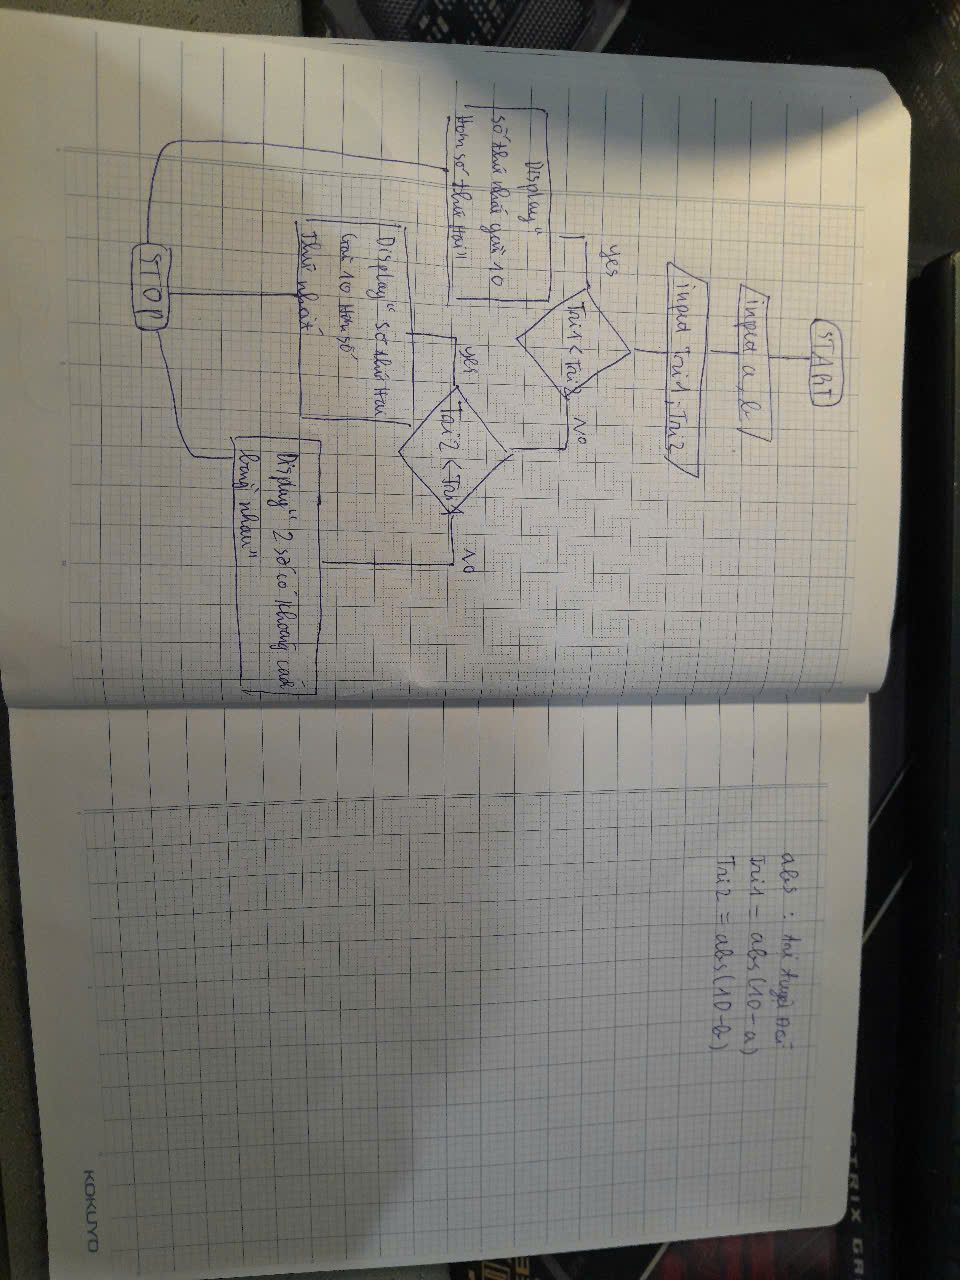 START
inped a, b
inped Tri1, Tri2
Tri1 < Tri2
yes
NO
Display"
số thứ nhất gần 10
Hơn số thứ Hai"
Tri2 < Tri1
yes
NO
Display" số thứ Hai
Gần 10 Hơn số
Thứ nhất"
Display" 2 số có khoảng cách
bằng nhau"
STOP
abs : trị tuyệt đối
Tri1 = abs(10-a)
Tri2 = abs(10-b)
KOKUYO
STRIX